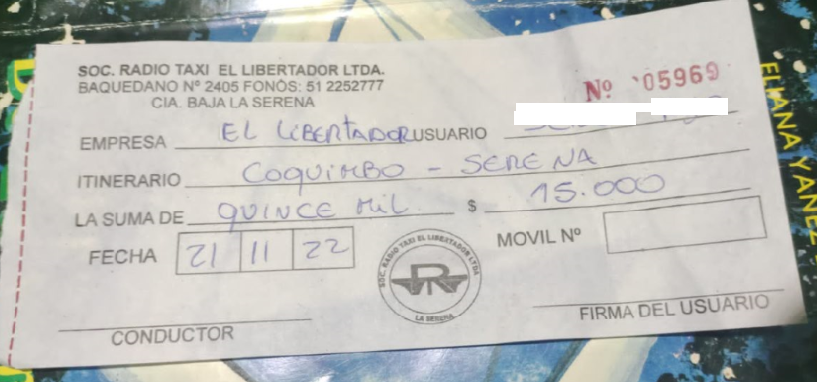 SOC. RADIO TAXI EL LIBERTADOR LTDA.
BAQUEDANO Nº 2405 FONOS: 51 2252777
CIA. BAJA LA SERENA
Nº 05969
EMPRESA EL LIBERTADOR USUARIO
ITINERARIO COQUIMBO - SERENA
LA SUMA DE QUINCE MIL $ 15.000
FECHA 21 11 22 MOVIL Nº
SOC. RADIO TAXI EL LIBERTADOR LTDA
R
LA SERENA
CONDUCTOR
FIRMA DEL USUARIO
ELIANA YAÑEZ